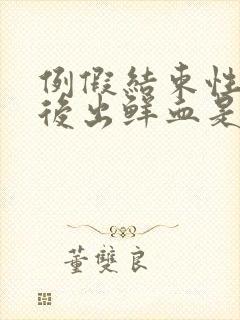 例假結束性
後出鮮血是
董雙良